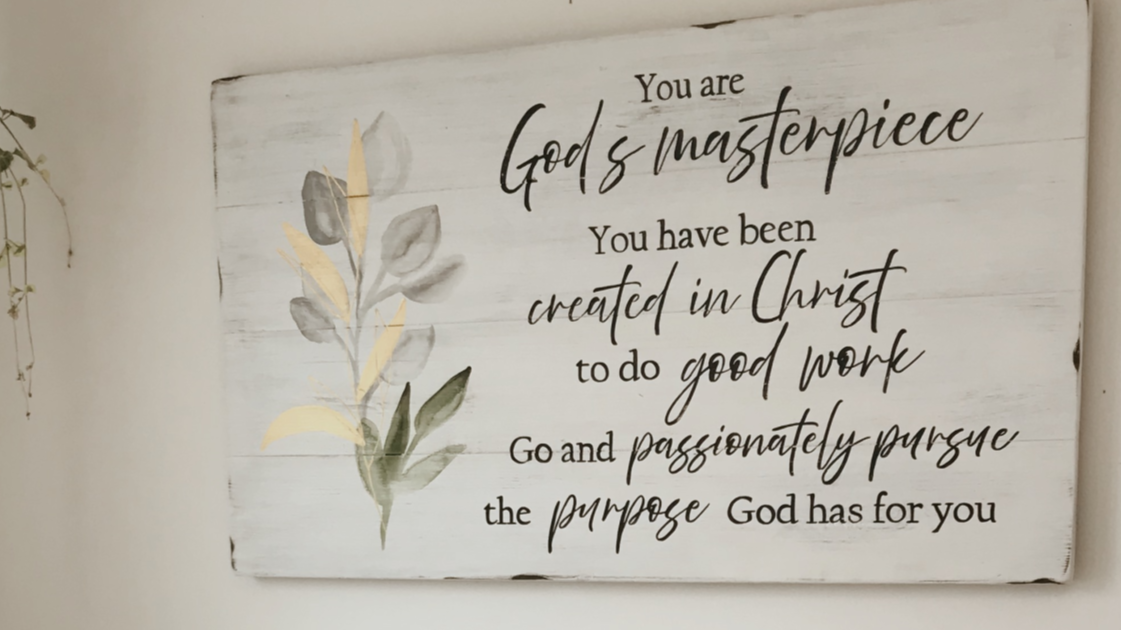 You are
God's masterpiece
You have been
created in Christ
to do good work
Go and passionately pursue
the purpose God has for you